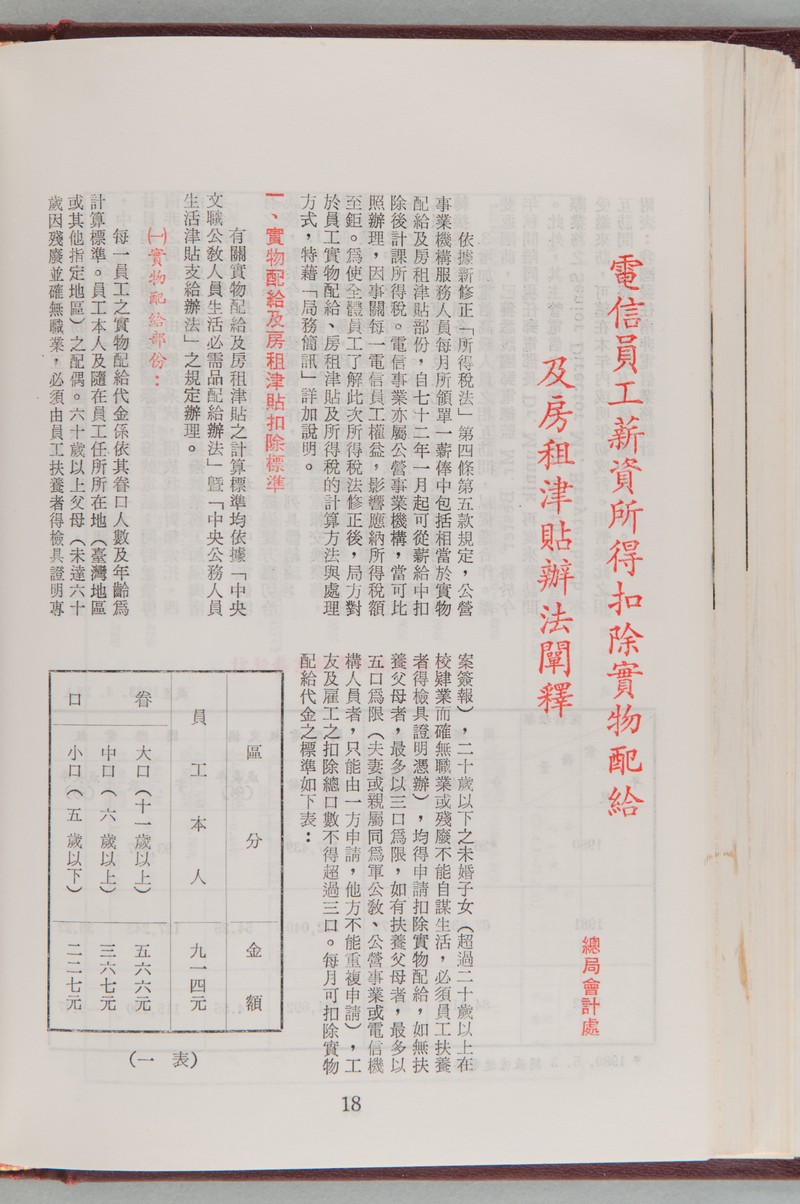 電信員工薪資所得扣除實物配給
及房租津貼辦法闡釋
總局會計處
依據新修正「所得稅法」第四條第五款規定，公營
事業機構服務人員每月所領單一薪俸中包括相當於實物
配給及房租津貼部份，自七十二年一月起可從薪給中扣
除後計課所得稅。電信事業亦屬公營事業機構，當可比
照辦理，因事關每一電信員工權益，影響應納所得稅額
至鉅。爲使全體員工了解此次所得稅法修正後，局方對
於員工實物配給、房租津貼及所得稅的計算方法與處理
方式，特藉「局務簡訊」詳加說明。
一、實物配給及房租津貼扣除標準
有關實物配給及房租津貼之計算標準均依據「中央
文職公教人員生活必需品配給辦法」暨「中央公務人員
生活津貼支給辦法」之規定辦理。
㈠實物配給部份：
每一員工之實物配給代金係依其眷口人數及年齡爲
計算標準。員工本人及隨在員工任所所在地（臺灣地區
或其他指定地區）之配偶。六十歲以上父母（未達六十
歲因殘廢並確無職業，必須由員工扶養者得檢具證明專
案簽報），二十歲以下之未婚子女（超過二十歲以上在
校肄業而確無職業或殘廢不能自謀生活，必須員工扶養
者得檢具證明憑辦），均得申請扣除實物配給，如無扶
養父母者，最多以三口爲限，如有扶養父母者，最多以
五口爲限（夫妻或親屬同爲軍公教、公營事業或電信機
構人員者，只能由一方申請，他方不能重複申請），工
友及雇工之扣除總口數不得超過三口。每月可扣除實物
配給代金之標準如下表：
區分 金額
員工本人 九一四元
眷口 大口（十一歲以上） 五六六元
中口（六歲以上） 三六七元
小口（五歲以下） 二二七元
（表一）
18